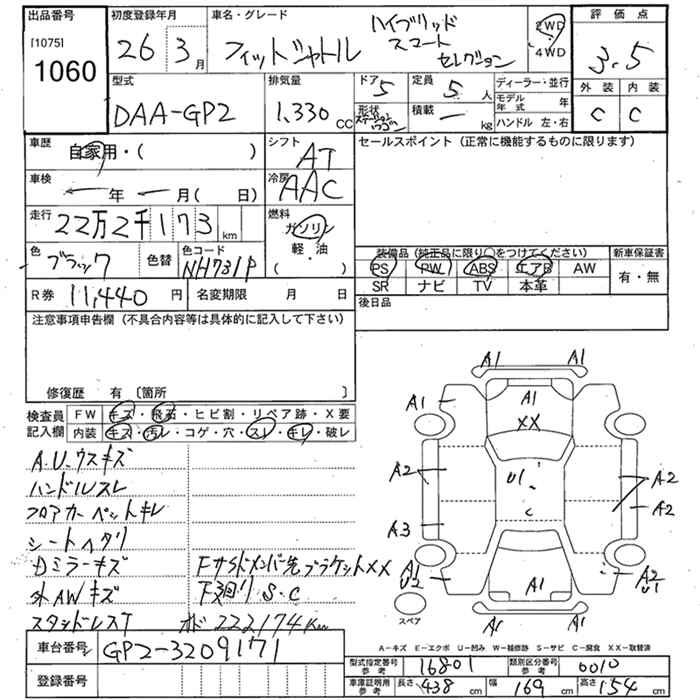 出品番号 初度登録年月 車名・グレード 評価点
[1075] 1060 26年3月 フィットシャトル ハイブリッド スマート セレクション 2WD・4WD 3.5
型式 排気量 ドア 5 定員 5人 ディーラー・並行 外装 内装
DAA-GP2 1,330cc 形状 ステーションワゴン 積載 ー kg モデル年式 年 C C
ハンドル 左・右
車歴 自家用・( ) シフト AT セールスポイント(正常に機能するものに限ります)
車検 ー年ー月( 日) 冷房 AAC
走行 22万2千173km 燃料 ガソリン・軽・油( )
色 ブラック 色替 色コード NH731P 装備品(純正品に限り○をつけてください) 新車保証書
PS PW ABS エアB AW 有・無
SR ナビ TV 本革
R券 11,440円 名変期限 月 日 後日品
注意事項申告欄(不具合内容等は具体的に記入して下さい)
修復歴 有 〔箇所 〕
検査員記入欄 FW キズ・飛石・ヒビ割・リペア跡・X要
内装 キズ・汚レ・コゲ・穴・スレ・キレ・破レ
A.U.ウスキズ
ハンドルスレ
フロアカーペットキレ
シートヘタリ
Dミラーキズ Fサイドメンバー先ブラケットXX
外AWキズ 下廻りS.C
スタッドレスT オド222174Km
A1 A1
A1 A1
XX
A2 U1 A2
A2
A3 C
A1 U2 A1 A2 U1
A1 A1
スペア
A-キズ E-エクボ U-凹み W-補修跡 S-サビ C-腐食 XX-取替済
車台番号 GP2-3209171 型式指定番号 参考 16801 類別区分番号 参考 0010
登録番号 車庫証明用 参考 長さ 438cm 幅 169cm 高さ 154cm